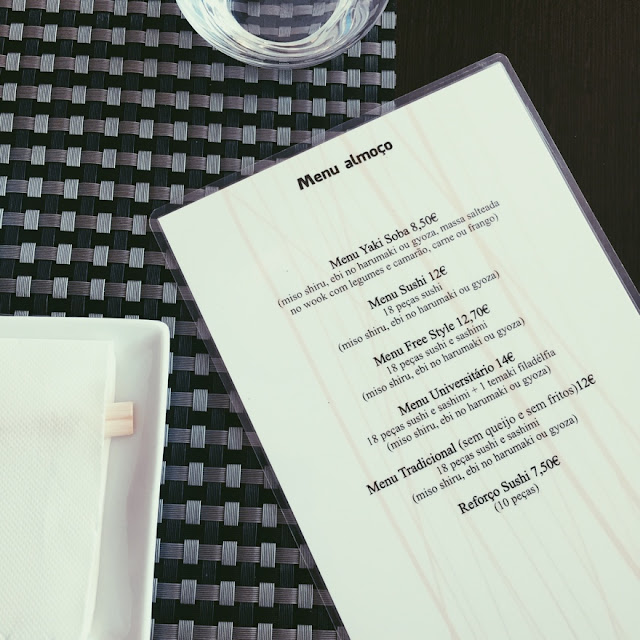 Menu almoço
Menu Yaki Soba 8,50€
(miso shiru, ebi no harumaki ou gyoza, massa salteada
no wook com legumes e camarão, carne ou frango)
Menu Sushi 12€
18 peças sushi
(miso shiru, ebi no harumaki ou gyoza)
Menu Free Style 12.70€
18 peças sushi e sashimi
(miso shiru, ebi no harumaki ou gyoza)
Menu Universitário 14€
18 peças sushi e sashimi + 1 temaki filadélfia
(miso shiru, ebi no harumaki ou gyoza)
Menu Tradicional (sem queijo e sem fritos)12€
18 peças sushi e sashimi
(miso shiru, ebi no harumaki ou gyoza)
Reforço Sushi 7,50€
(10 peças)